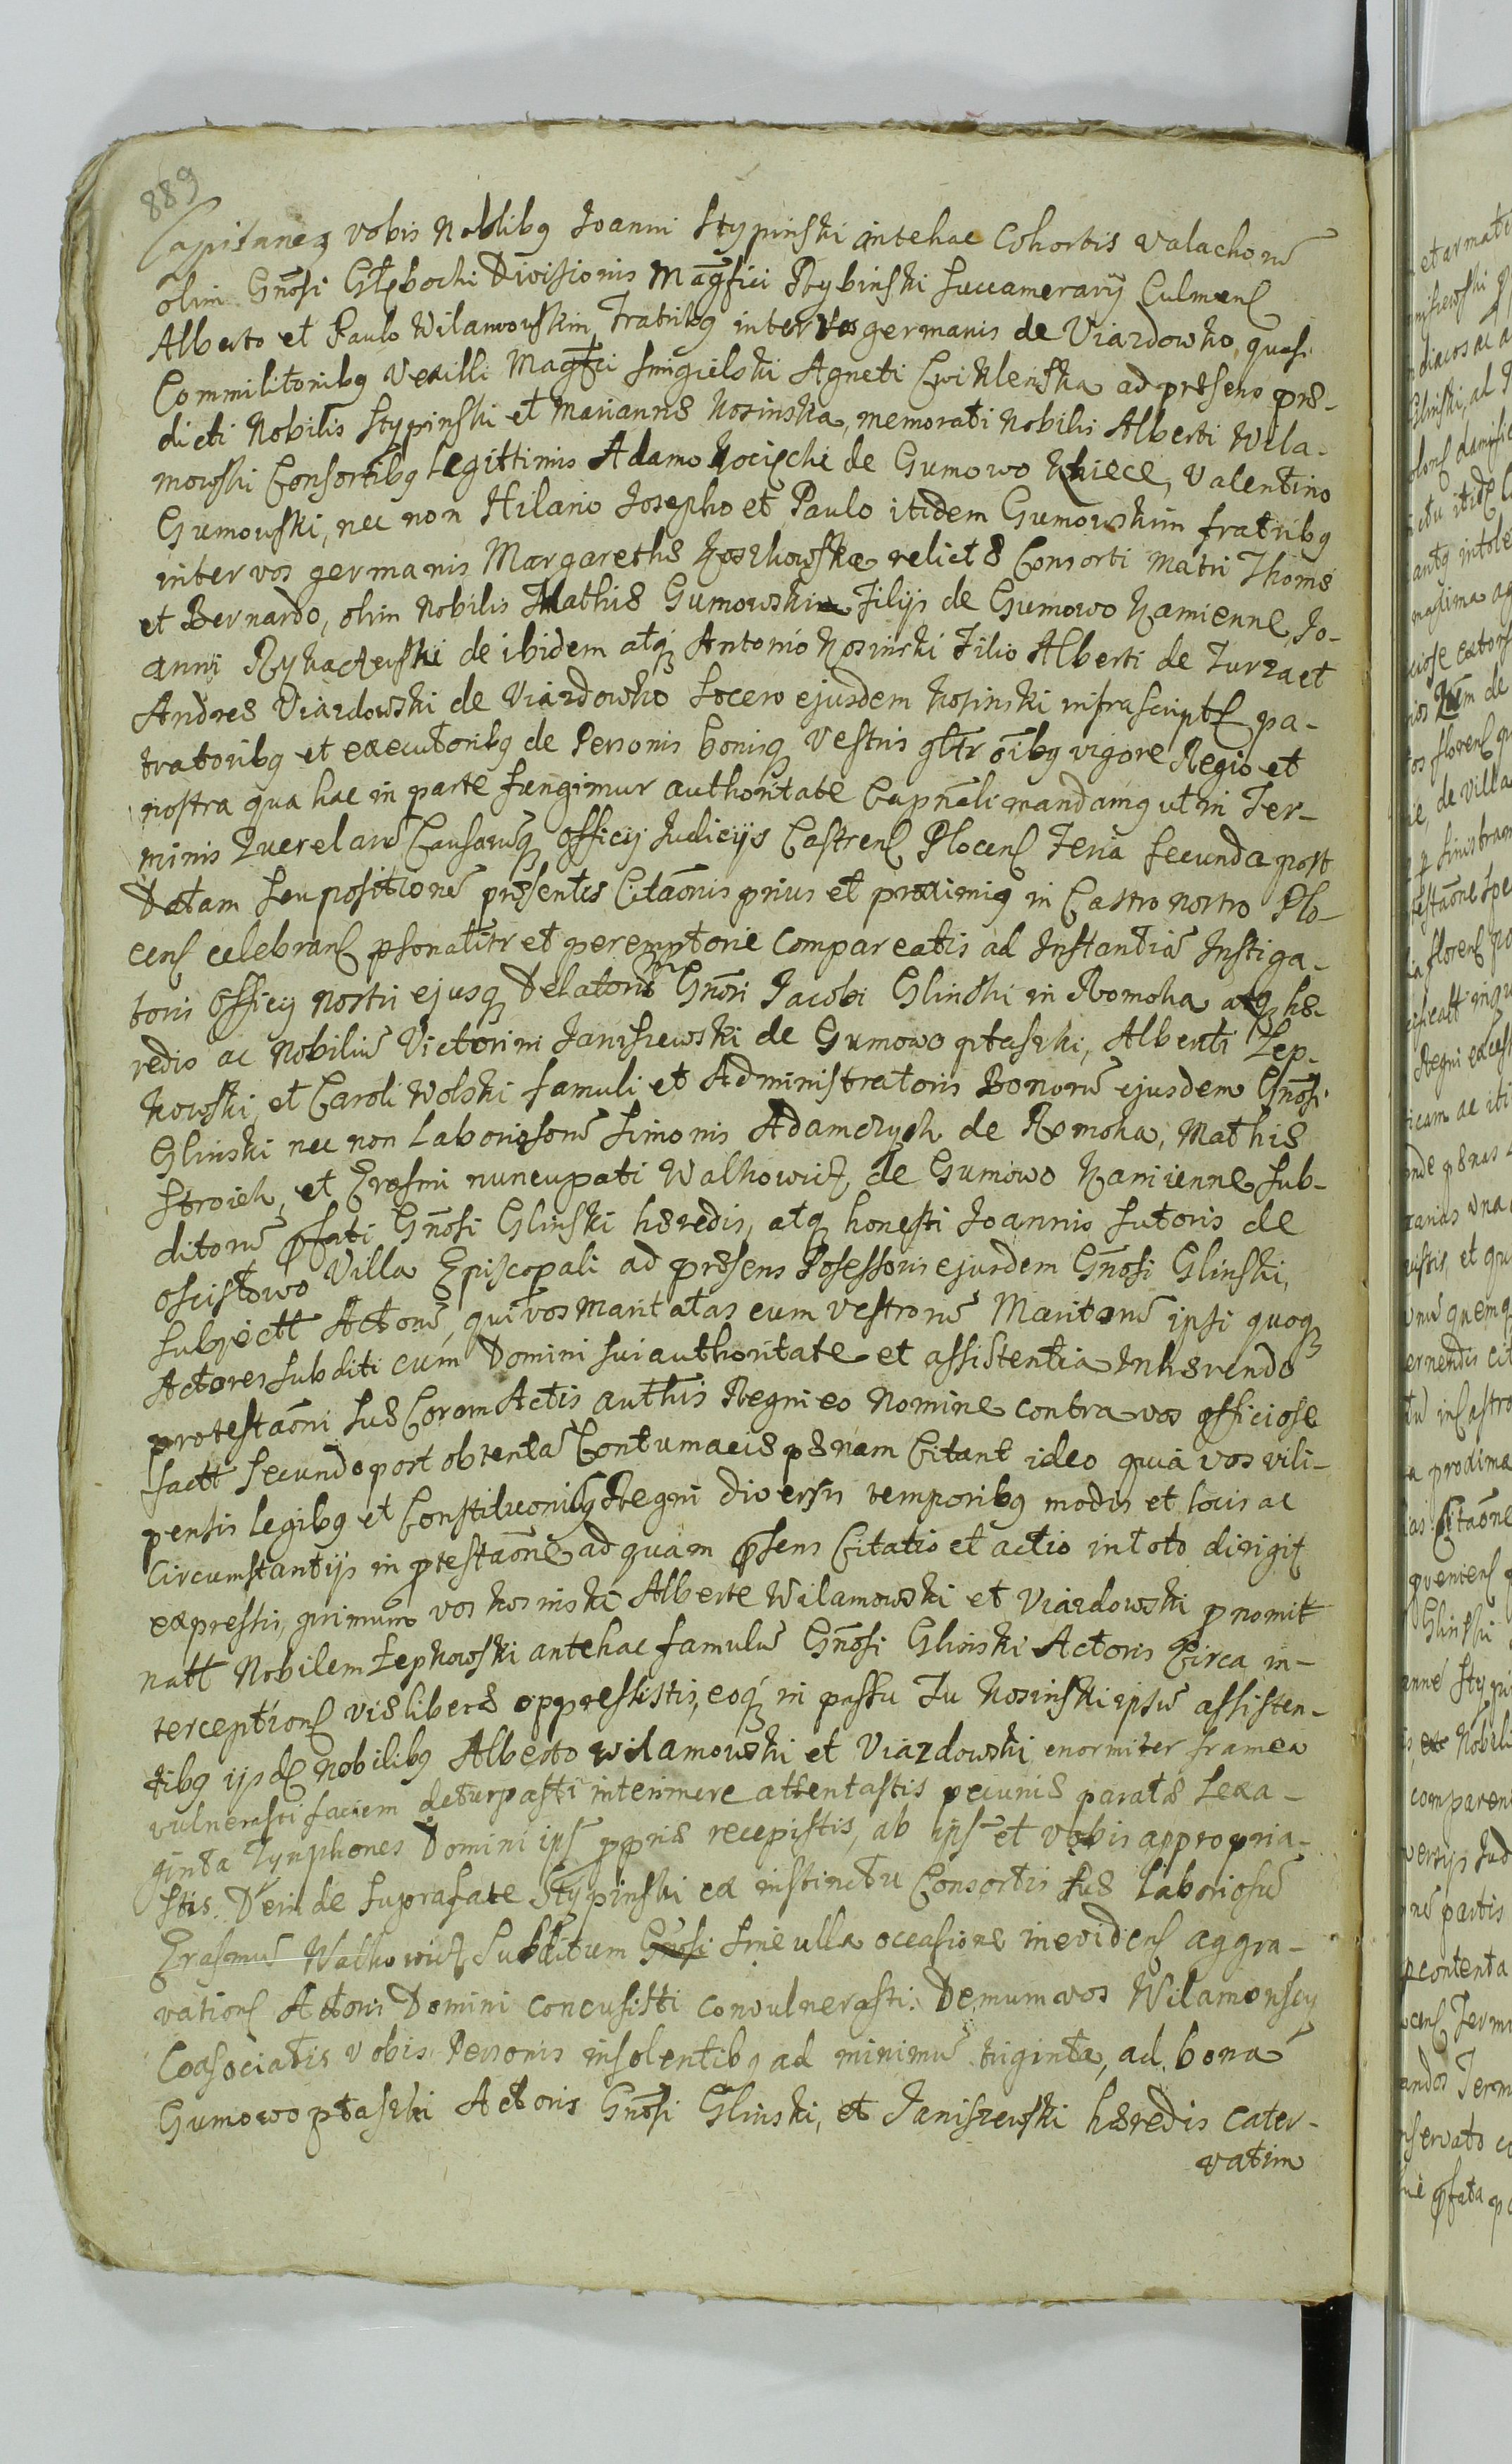 889
Capitaneus vobis Noblibq Joanni Stypinski antehac Cohortis Valachorū
olim Gn̄osi Głębocki Divisionis Maḡfici Rybinski Succamerarÿ Culmens
Alberto et Paulo Wilamowskim Fratribq inter vos germanis de Viazdowko, quasi
Commilitonibq Vexilli Magfci Smigielski Agneti Cwiklenska ad præsens præ-
dicti Nobilis Stypinski et Mariannæ Kosinska, memorati Nobilis Alberti Wila-
mowski Consortibq Legittimis Adamo Kocięcki de Gumowo Kniece, Valentino
Gumowski, nec non Hilario Josepho et Paulo itidem Gumowskim fratribq
inter vos germanis Margarethæ Koszkowska relictæ Consorti Matri Thomæ
et Bernardo, olim Nobilis Mathiæ Gumowski Filijs de Gumowo Kamienne, Jo-
anni Rykaczewski de ibidem atq Antonio Kosinski Filio Alberti de Turza et
Andreæ Viazdowski de Viazdowko Socero ejusdem Kosinski infrascripts pa-
tratoribq et executoribq de Personis bonisq Vestris gltr oībq vigore Regio et
nostra qua hac in parte fungimur authoritate Capnēali mandamq ut in Ter-
minis Querelarū Causarūq Officij Judicijs Castrens Plocens Feria Secunda post
Datam seu positionē præsentis Citāonis prius et proximiq in Castro nostro Plo-
cens celebrans psonalitr et peremptorie Compareatis ad Instantiā Instiga-
toris Officij nostri ejusq Delatorū Gn̄osi Jacobi Glinski in Romoka atq hæ-
redis ac Nobiliū Victorini Janiszewski de Gumowo ptaszki, Alberti Łep-
kowski, et Caroli Wolski famuli et Administratoris Bonorū ejusdem Gn̄osi
Glinski nec non Laboriosorū Simonis Adamczyk de Romoka, Mathiæ
Stroick, et Erasmi nuncupati Walkowicz de Gumowo Kamienne Sub-
ditorū pfati Gn̄osi Glinski hæredis, atq honesti Joannis Sutoris de
Osciſtowo Villa Episcopali ad præsens Posessoris ejusdem Gn̄osi Glinski,
Subjectt Actorū, qui vos maritatas cum vestrorū Maritorū ipsi quoq
Actores subditi cum Domini sui authoritate et assistentia Inhærendo
protestāoni suæ Coram Actis authis Regni eo Nomine contra vos officiose
factt Secundo post obtentā Contumaciæ pænam Citant ideo quia vos vili-
pensis legibq et Constitūonibq Regni diversis temporibq modis et locis ac
Circumstantijs in ptestāone ad quam psens Citatio et actio in toto dirigit
expressis, primum vos Kosinski Alberte Wilamowski et Viazdowski pnomit
natt Nobilem Łepkowski antehac famulū Gn̄osi Glinski Actoris Circa in-
terceptions viæ liberæ oppressistis, eoq in passu Tu Kosinski ipsū assisten-
tibq ijsds Nobilibq Alberto Wilamowski et Viazdowski enormiter framea
vulnerasti faciem deturpasti interimere attentastis pecuniæ paratæ Sexa-
ginta Tynphones Domini ips ppriæ recepistis, ab ips et vobis appropria-
stis. Deinde Suprafate Stypinski ex instinctu Consortis tuæ Laboriosū
Erasmū Walkowicz Subditum Gnosi sine ulla occasione in evidens aggra-
vations Actoris Domini concusisti convulnerasti. Demum vos Wilamonscÿ
Coasociatis vobis Personis insolentibq ad minimū triginta, ad bona
Gumowo ptaszki Actoris Gnōsi Glinski, et Janiszewski hæredis cater-
vatim